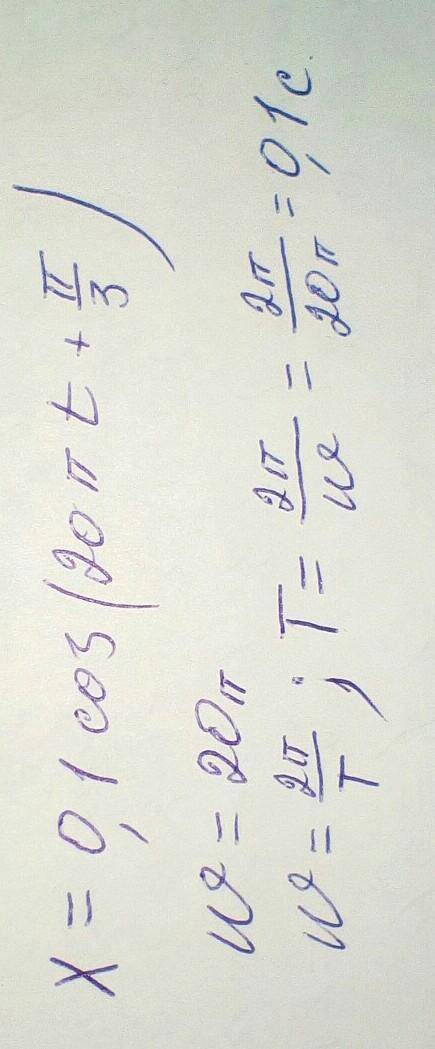 x = 0,1 cos(20π t + π/3)
ω = 20π
ω = 2π/T ; T = 2π/ω = 2π/20π = 0,1 с.